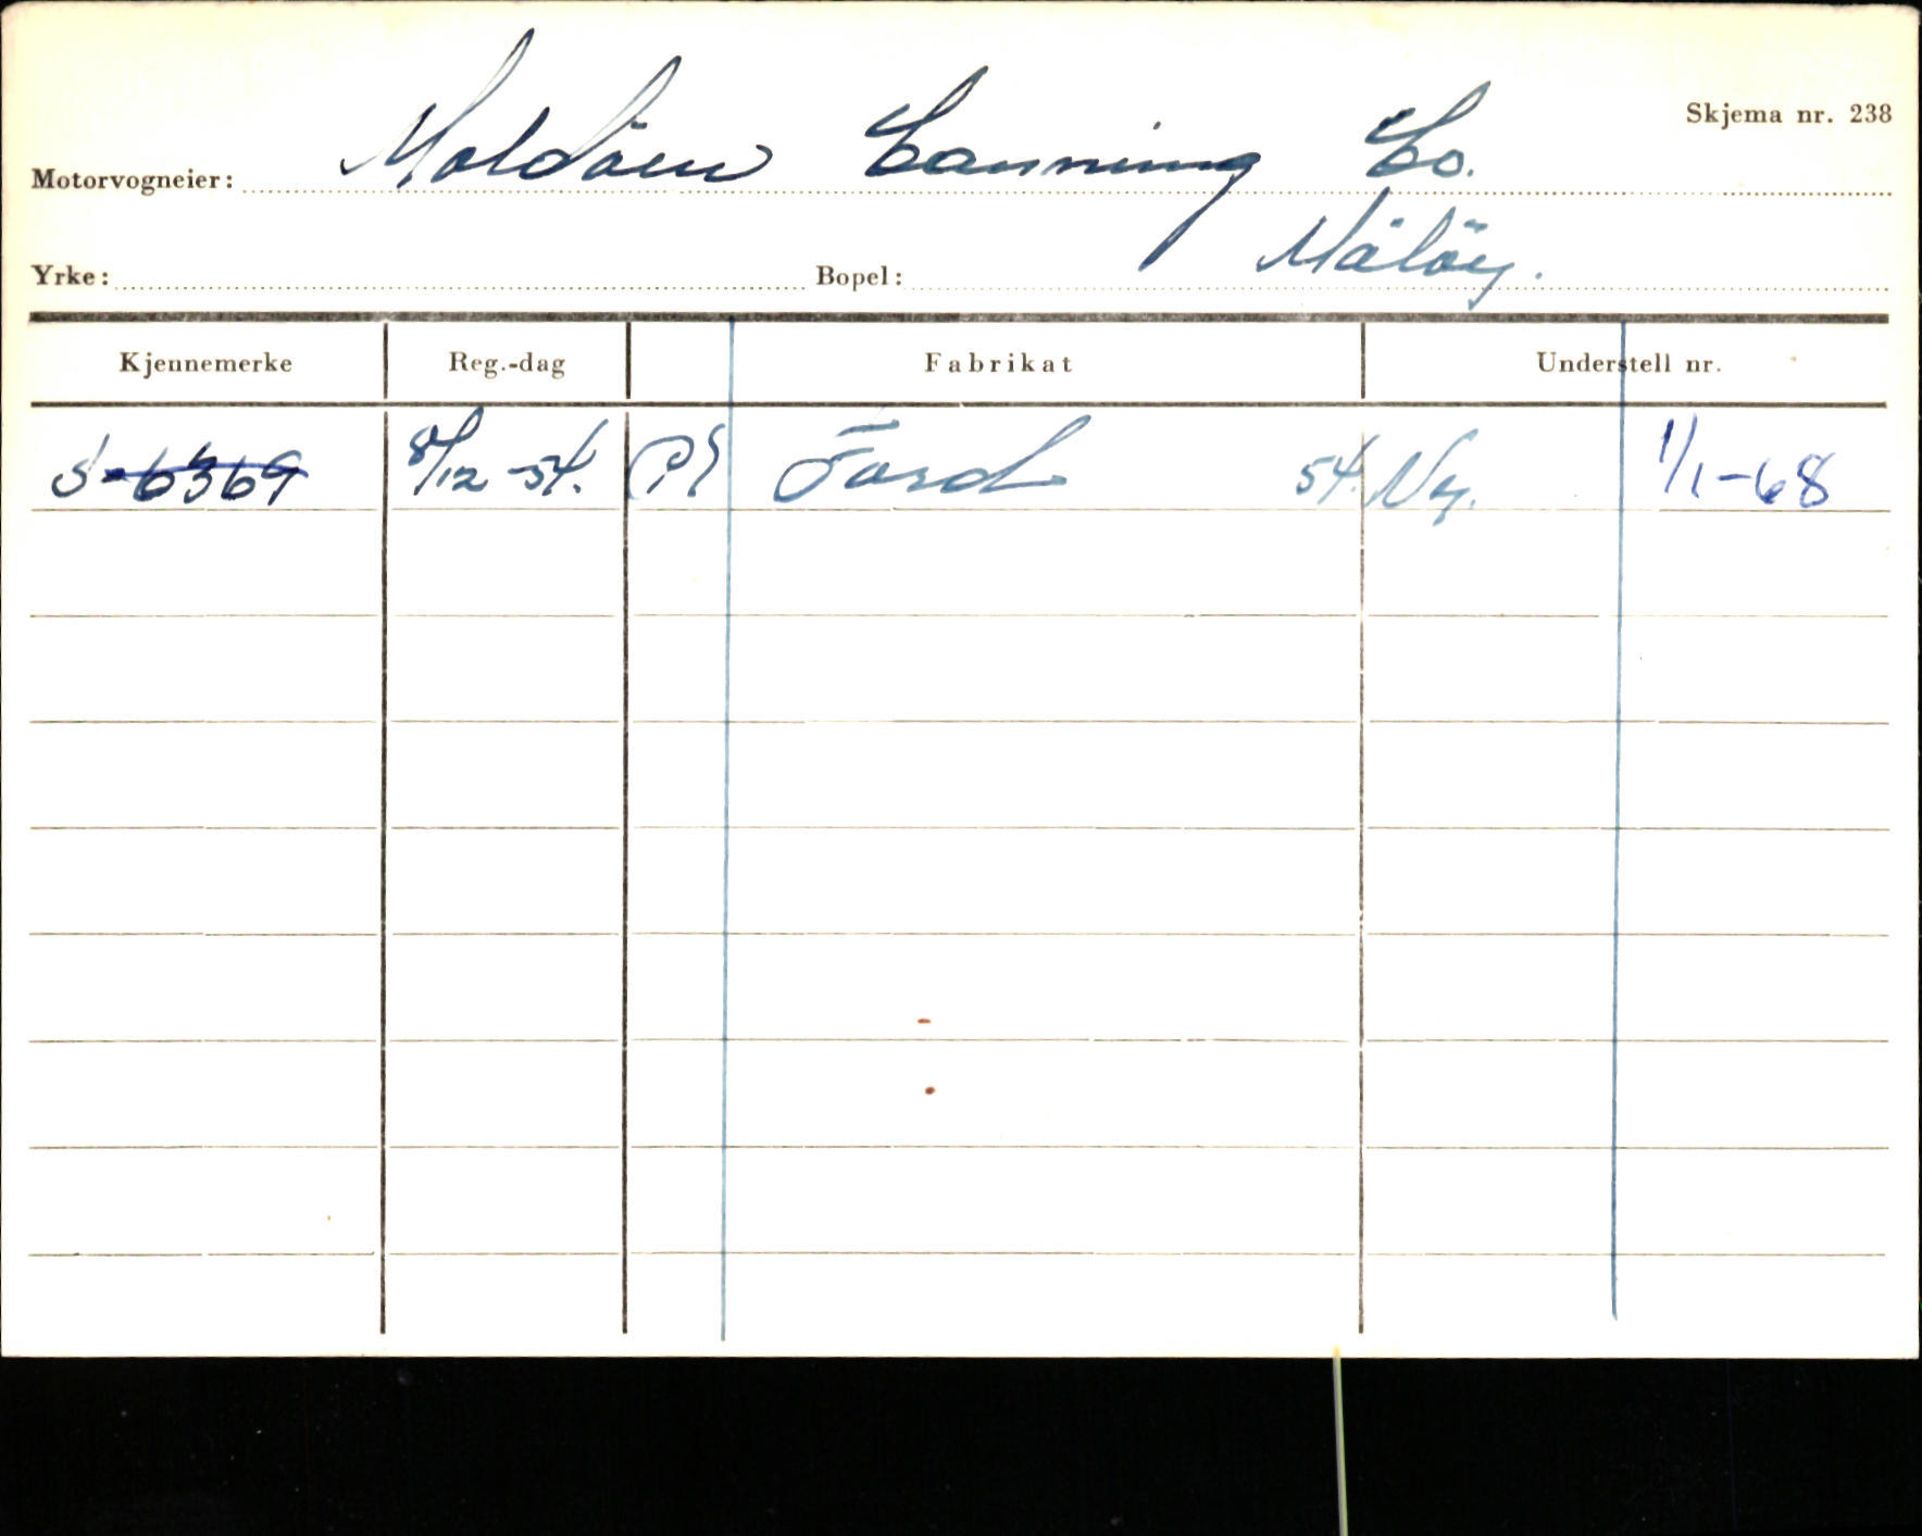 Skjema nr. 238
Motorvogneier: Moldöen Canning Co.
Yrke: Bopel: Måløy.
Kjennemerke Reg.-dag Fabrikat Understell nr.
S-6369 8/12-54. Ford 54. Ny. 1/1-68